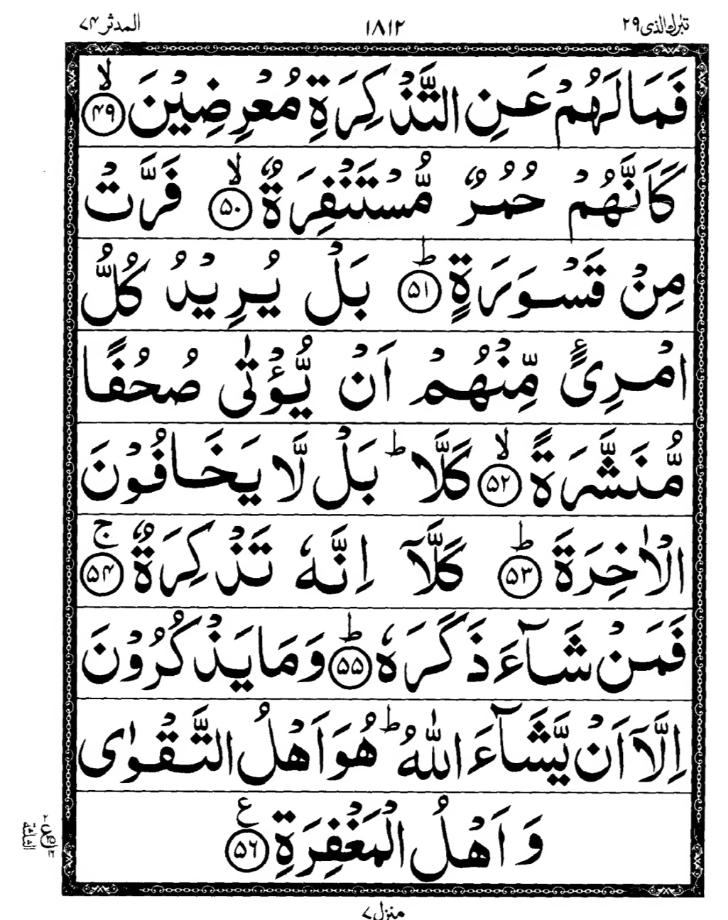 تبٰرك الذی ۲۹ ۱۸۱۲ المدثر ۷۴
فَمَا لَهُمْ عَنِ التَّذْكِرَةِ مُعْرِضِيْنَ ۙ﴿۴۹﴾
كَاَنَّهُمْ حُمُرٌ مُّسْتَنْفِرَةٌ ۙ﴿۵۰﴾ فَرَّتْ
مِنْ قَسْوَرَةٍ ؕ﴿۵۱﴾ بَلْ يُرِيْدُ كُلُّ
امْرِیٴٍ مِّنْهُمْ اَنْ يُّؤْتٰى صُحُفًا
مُّنَشَّرَةً ۙ﴿۵۲﴾ كَلَّا ؕ بَلْ لَّا يَخَافُوْنَ
الْاٰخِرَةَ ؕ﴿۵۳﴾ كَلَّاۤ اِنَّهٗ تَذْكِرَةٌ ۚ﴿۵۴﴾
فَمَنْ شَآءَ ذَكَرَهٗ ؕ﴿۵۵﴾ وَمَا يَذْكُرُوْنَ
اِلَّاۤ اَنْ يَّشَآءَ اللّٰهُ ؕ هُوَ اَهْلُ التَّقْوٰى
وَ اَهْلُ الْمَغْفِرَةِ ﴿۵۶﴾ ع
منزل ۷